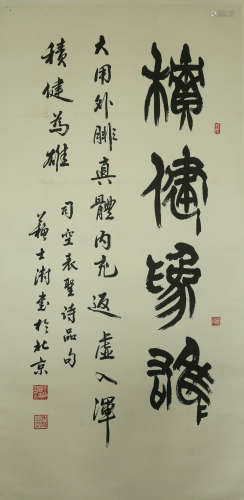 積健為雄
大用外腓真體內充返虛入渾
積健為雄
司空表聖詩品句
蘇士澍書於北京